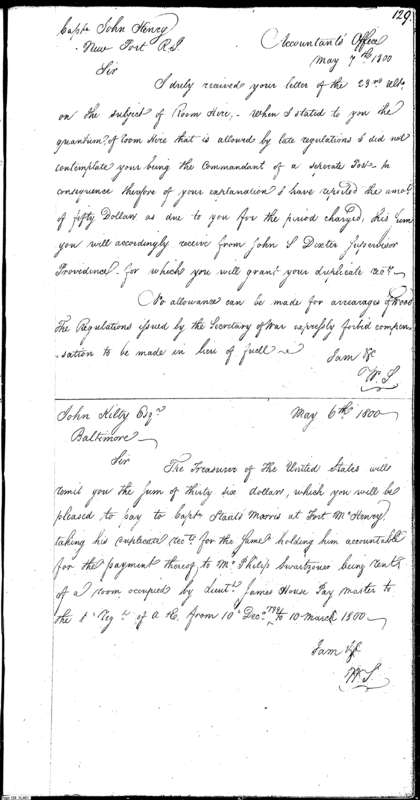 129
Capt. John Henry
New Port R.I
Accountants' Office
May 7th 1800
Sir
I duly received your letter of the 23rd Ulto.
on the subject of Room Hire,. When I stated to you the
quantum of room Hire that is allowed by late regulations I did not
contemplate your being the Commandant of a seperate Post. In
consequence therefore of your explanation I have reported the amot.
of fifty Dollars as due to you for the period charged, this Sum
you will accordingly receive from John S Dexter Supervisor
Providence. for which you will grant your duplicate rects.
No allowance can be made for arrearages of Wood
The Regulations issued by the Secretary of War expressly forbid compen
-sation to be made in lieu of fuell
I am &c
W. S
John Kilty Esqr.
Baltimore
May 6th 1800
Sir
The Treasurer of the United States will
remit you the Sum of thirty six dollars, which you will be
pleased to pay to Capt. Staats Morris at Fort McHenry
taking his duplicate rects. for the same holding him accountable
for the payment thereof to Mr. Philip Swartzouer being rent
of a room occupied by Lieut. James House Pay Master to
the 1st Regt. of A &E. from 10 Decr. 1799 to 10 March 1800
I am &c
W. S.